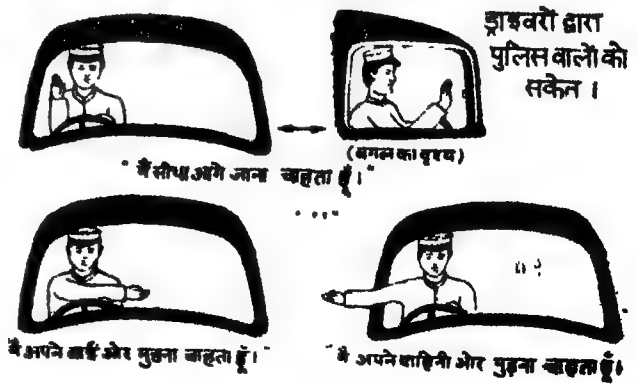 ड्राइवरों द्वारा
पुलिस वालों को
सकेत ।
(बगल का दृश्य)
"मैं सीधा आगे जाना चाहता हूँ।"
"मै अपने बाईं ओर मुड़ना चाहता हूँ।"
"मै अपने दाहिनी ओर मुड़ना चाहता हूँ।